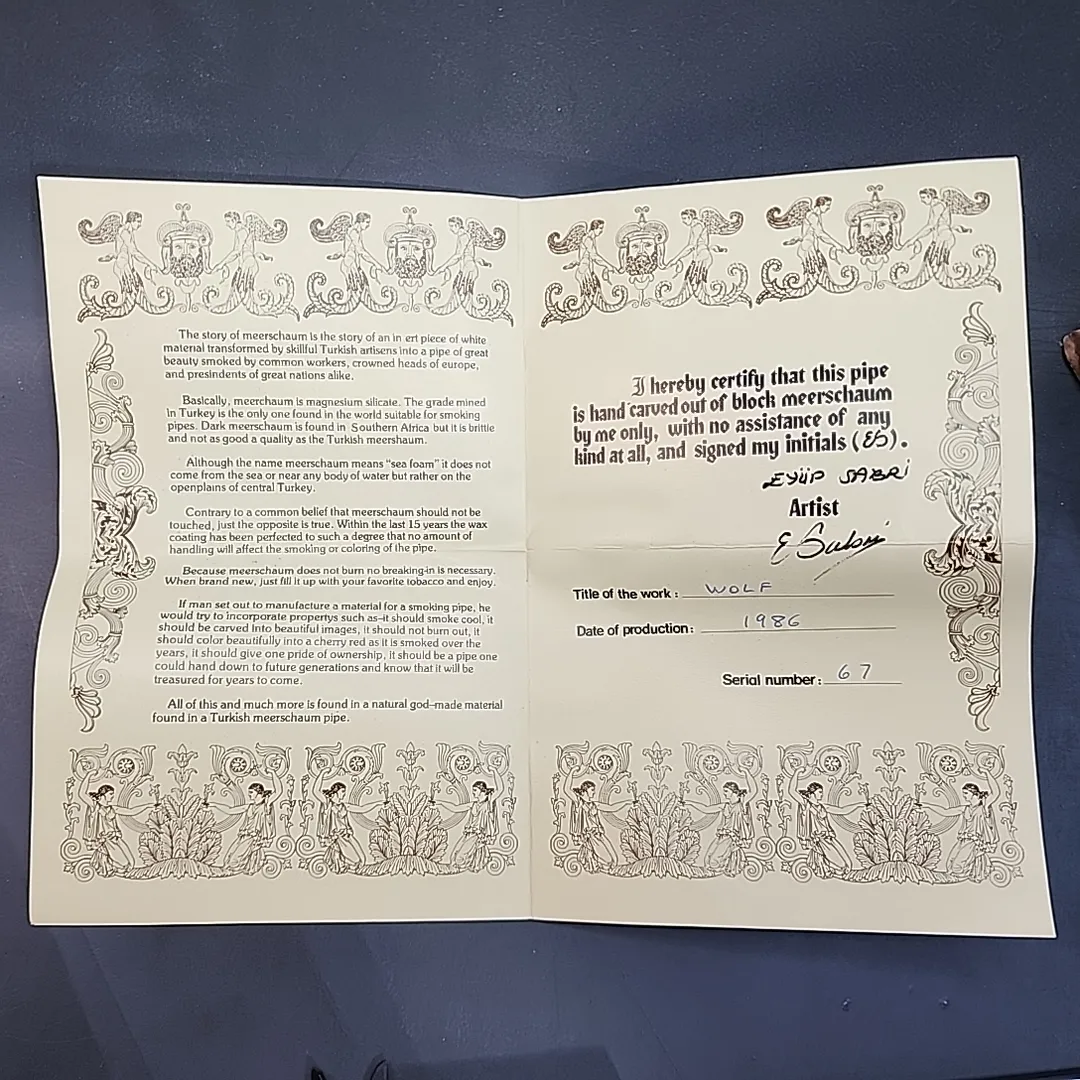 The story of meerschaum is the story of an in ert piece of white
material transformed by skillful Turkish artisens into a pipe of great
beauty smoked by common workers, crowned heads of europe,
and presindents of great nations alike.
Basically, meerchaum is magnesium silicate. The grade mined
in Turkey is the only one found in the world suitable for smoking
pipes. Dark meerschaum is found in Southern Africa but it is brittle
and not as good a quality as the Turkish meershaum.
Although the name meerschaum means "sea foam" it does not
come from the sea or near any body of water but rather on the
openplains of central Turkey.
Contrary to a common belief that meerschaum should not be
touched, just the opposite is true. Within the last 15 years the wax
coating has been perfected to such a degree that no amount of
handling will affect the smoking or coloring of the pipe.
Because meerschaum does not burn no breaking-in is necessary.
When brand new, just fill it up with your favorite tobacco and enjoy.
If man set out to manufacture a material for a smoking pipe, he
would try to incorporate propertys such as-it should smoke cool, it
should be carved Into beautiful images, it should not burn out, it
should color beautifully into a cherry red as it is smoked over the
years, it should give one pride of ownership, it should be a pipe one
could hand down to future generations and know that it will be
treasured for years to come.
All of this and much more is found in a natural god-made material
found in a Turkish meerschaum pipe.
I hereby certify that this pipe
is hand carved out of block meerschaum
by me only, with no assistance of any
kind at all, and signed my initials (ES).
EYÜP SABRİ
Artist
E Sabri
Title of the work : WOLF
Date of production: 1986
Serial number: 67